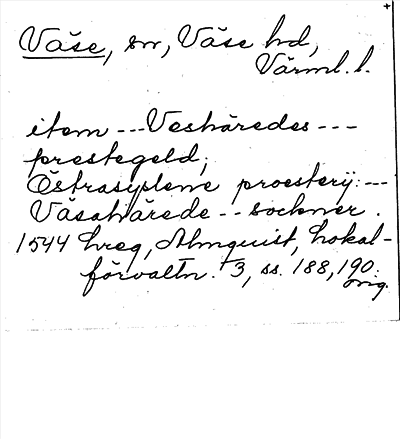 Väse, sn, Väse hd,
Värml. l.
item --- Veshäredes ---
prestegeld;
Östrasyslene proesterij: ---
Väsahärede -- sockner.
1544 Lreg, Almquist, Lokal-
förvaltn. 3, ss. 188, 190.
orig.